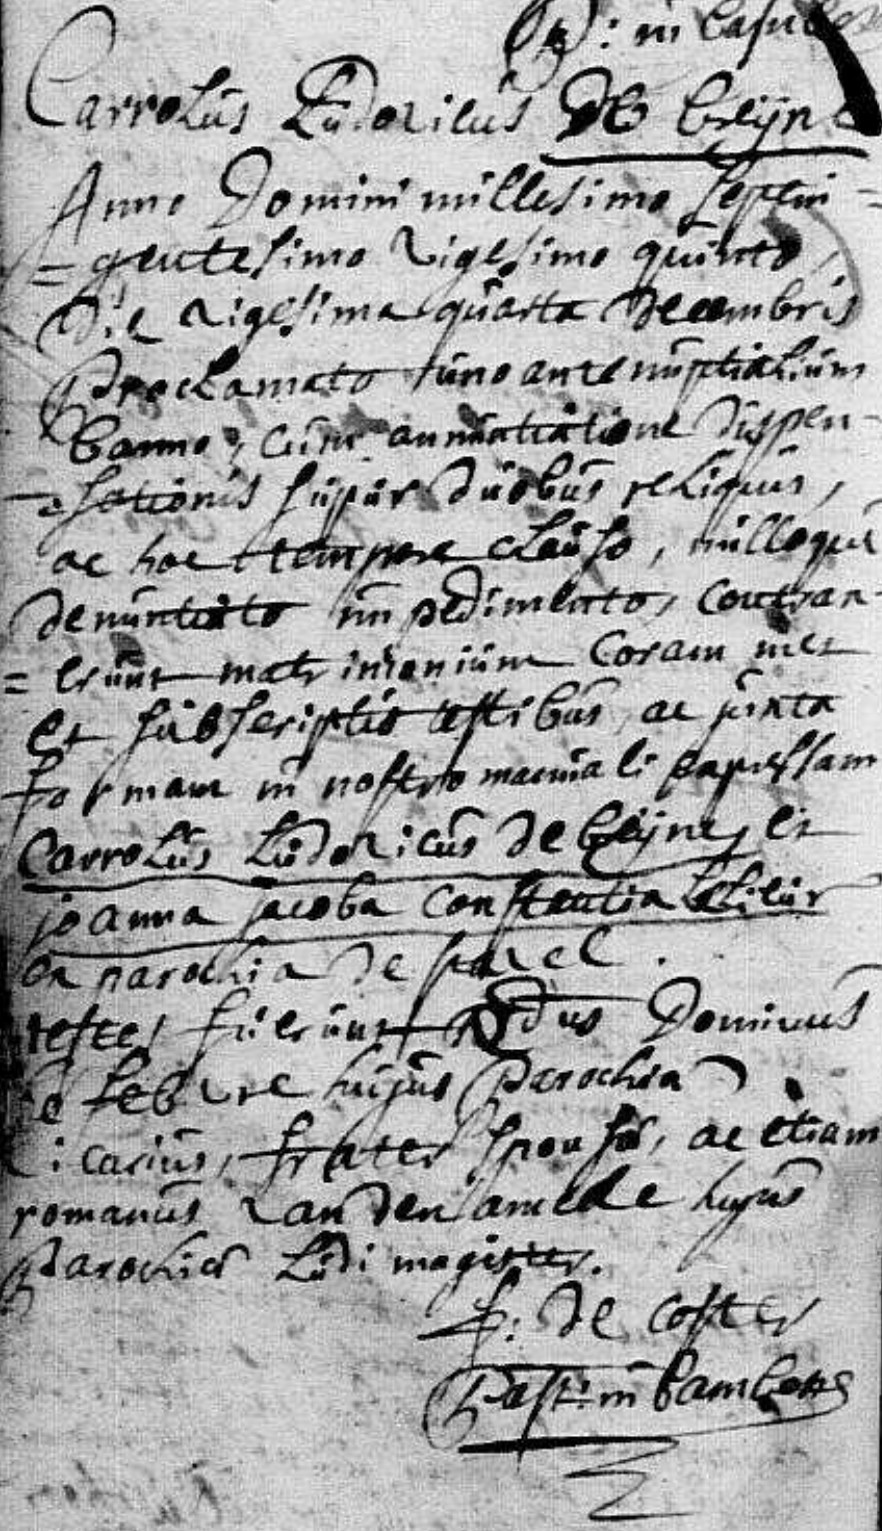 in
Carrolus Ludovicus De Creijne
Anno Domini millesimo septin=
=gentesimo vigesimo quinto,
Die vigesima quarta decembris
Proclamato uno ante nuptialium
banno, cum annuntiatione dispen-
-sationis super duobus reliquis,
ac hoc tempore clauso, nulloque
denuntiato impedimento, contrax-
=erunt matrimonium Coram me
et subscriptis testibus, ac juxta
formam in nostro manuali expressam
Carrolus Ludovicus de Creijne, et
joanna jacoba Constantia
ex parochia de
testes fuerunt Rdus Dominus
de Febvre hujus Parochia
vicarius, frater sponsa, ac etiam
romanus vanden amelle hujus
Parochia Ludi magister.
de Coster
Past: in bambeke